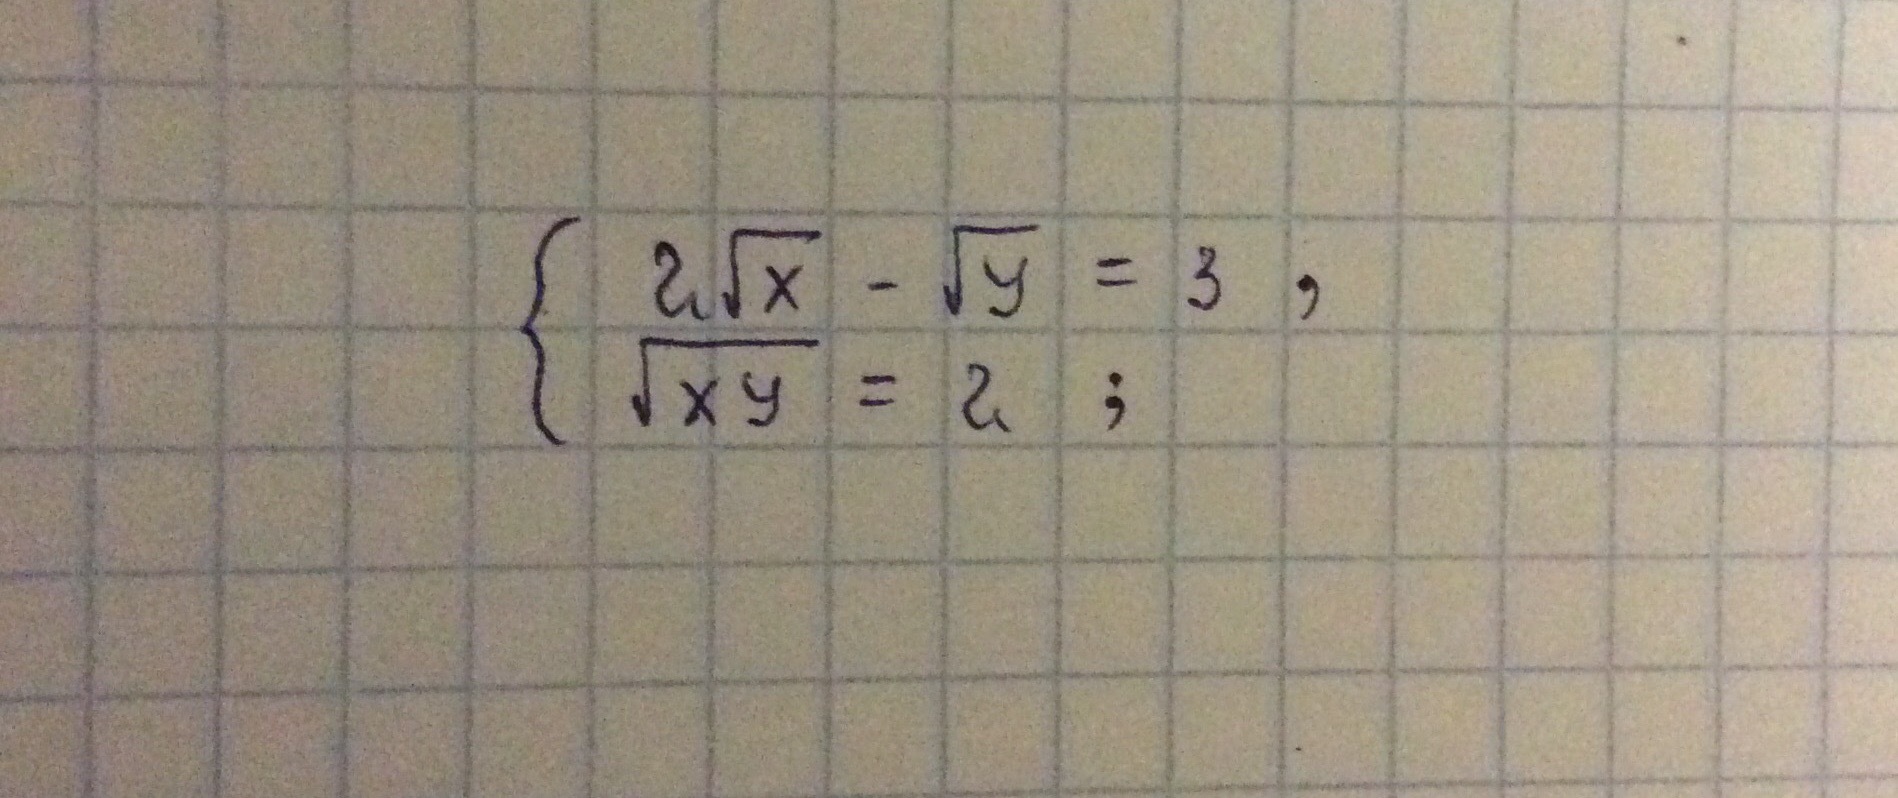 { 2√x - √y = 3 ,
√xy = 2 ;